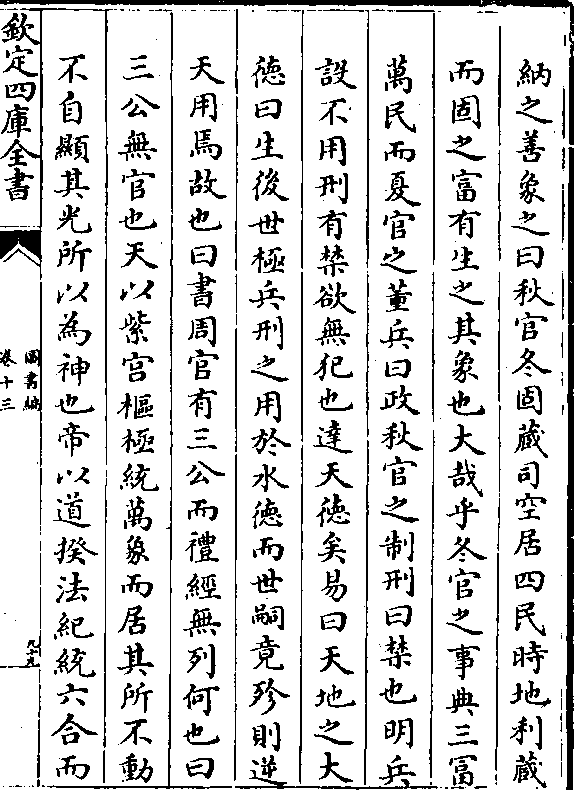 納之善象之曰秋官冬固藏司空居四民時地利藏
而固之富有生之其象也大哉乎冬官之事典三富
萬民而夏官之董兵曰政秋官之制刑曰禁也明兵
設不用刑有禁欲無犯也達天德矣易曰天地之大
德曰生後世極兵刑之用於水德而世嗣竟殄則逆
天用焉故也曰書周官有三公而禮經無列何也曰
三公無官也天以紫宫樞極統萬象而居其所不動
不自顯其光所以為神也帝以道揆法紀統六合而
欽定四庫全書
圖書編
卷十三